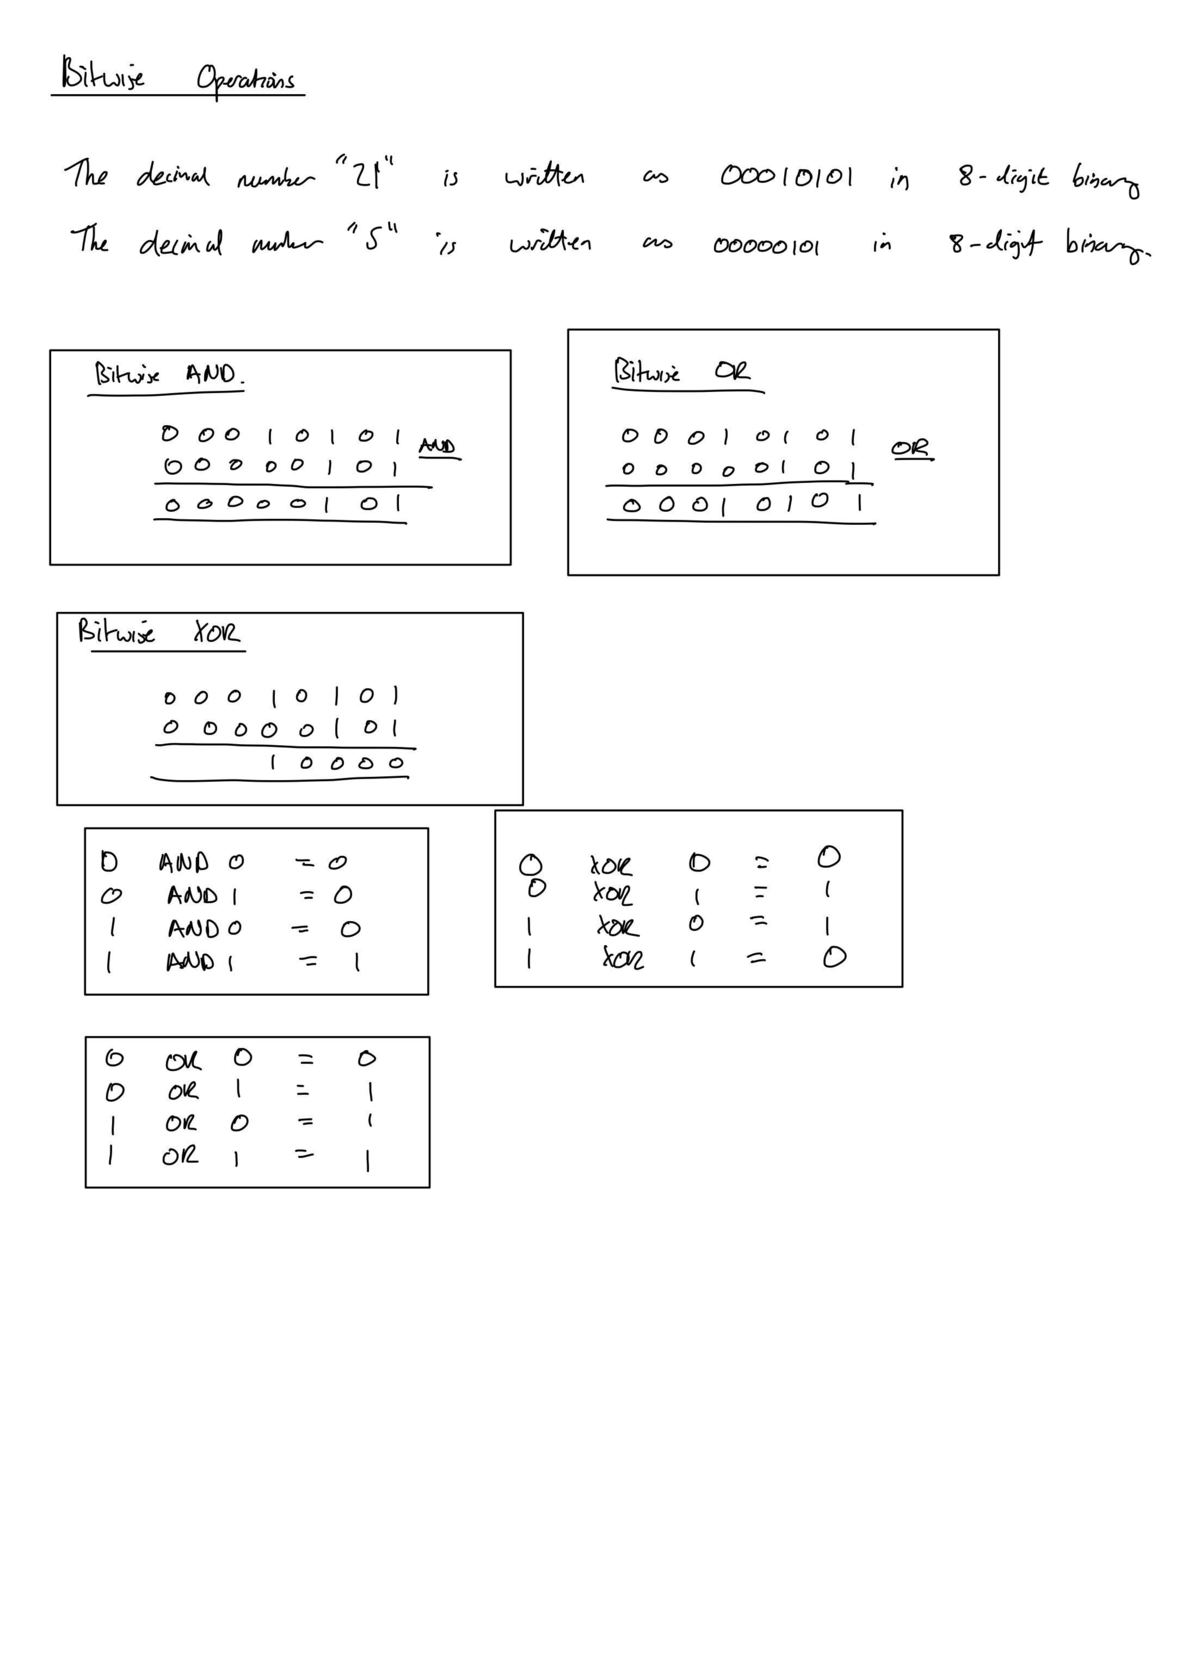 Bitwise Operations
The decimal number "21" is written as 00010101 in 8-digit binary
The decimal number "5" is written as 00000101 in 8-digit binary.
Bitwise AND.
0 0 0 1 0 1 0 1 AND
0 0 0 0 0 1 0 1
0 0 0 0 0 1 0 1
Bitwise OR
0 0 0 1 0 1 0 1 OR
0 0 0 0 0 1 0 1
0 0 0 1 0 1 0 1
Bitwise XOR
0 0 0 1 0 1 0 1
0 0 0 0 0 1 0 1
1 0 0 0 0
0 AND 0 = 0
0 AND 1 = 0
1 AND 0 = 0
1 AND 1 = 1
0 XOR 0 = 0
0 XOR 1 = 1
1 XOR 0 = 1
1 XOR 1 = 0
0 OR 0 = 0
0 OR 1 = 1
1 OR 0 = 1
1 OR 1 = 1